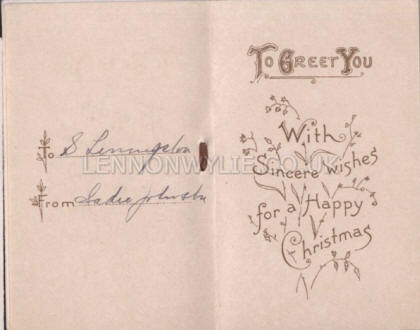 To S Lennington
From Sadie Johnston
LENNONWYLIE.CO.UK
TO GREET YOU
With
Sincere wishes
for a Happy
Christmas